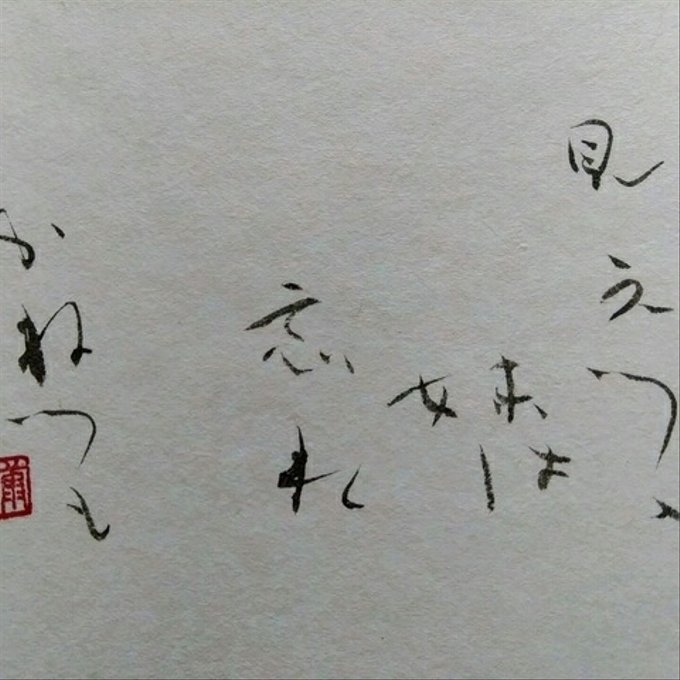 見えつゝ
妹は
忘れ
かねつも